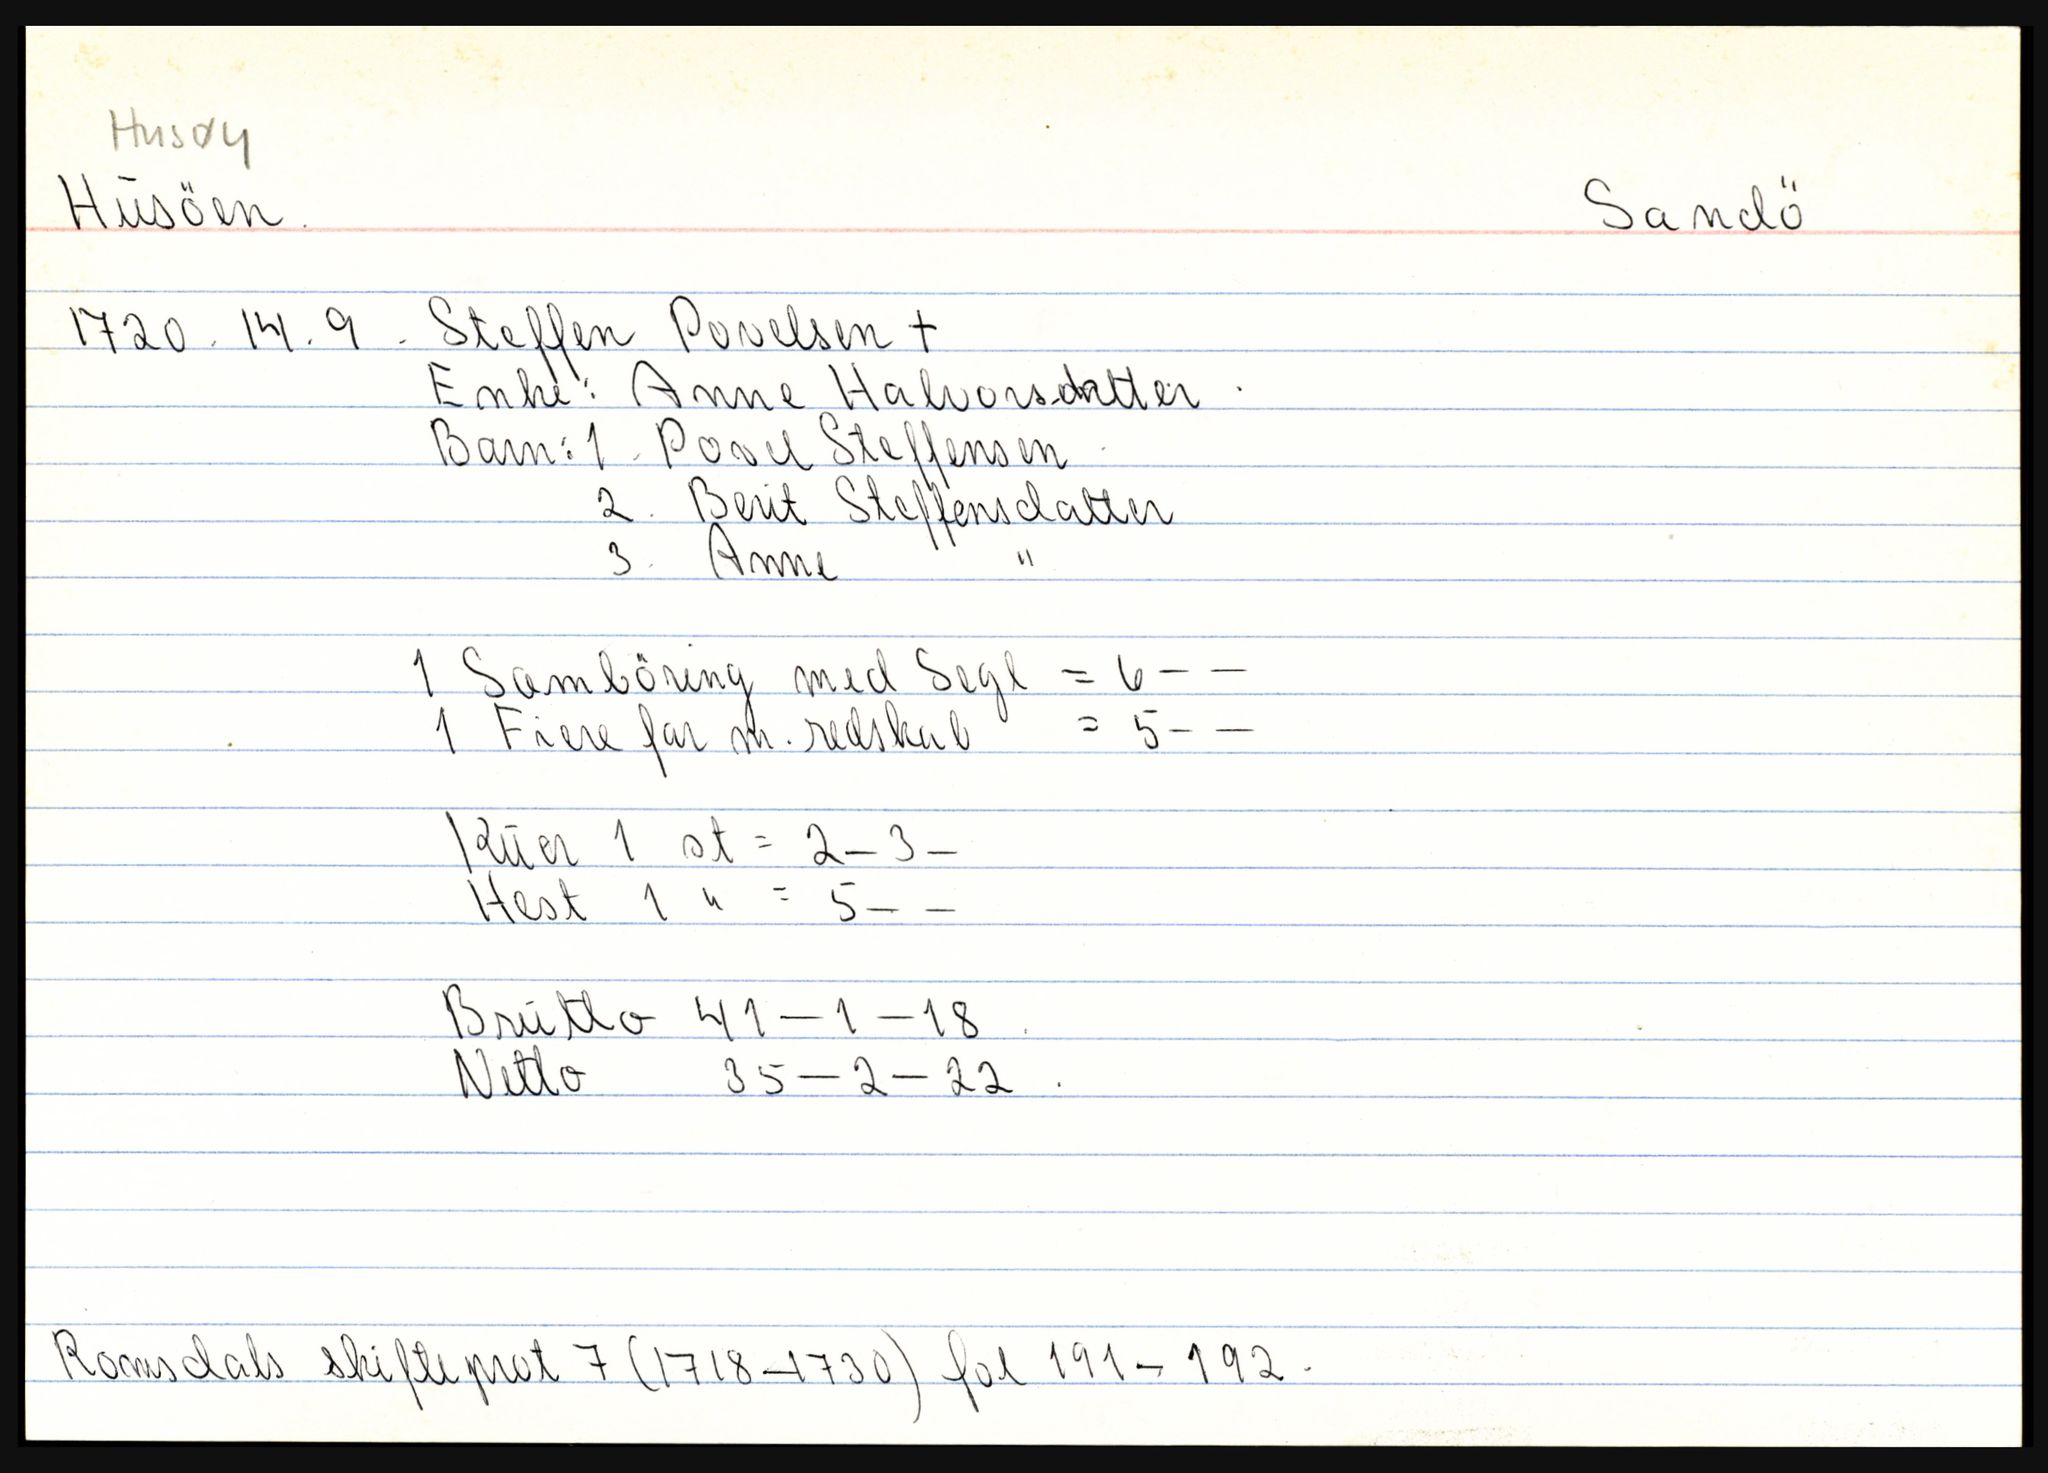 Husøy
Hūsöen.
Sandö
1720. 14. 9. Steffen Povelsen +
Enke: Anne Halvorsdatter.
Barn: 1. Povel Steffensen.
2. Berit Steffensdatter
3. Anne "
1 Samböring med Segl = 6 - -
1 Fiere far m. redskab = 5 - -
Kūer 1 st = 2 - 3 -
Hest 1 " = 5 - -
Brūtto 41 - 1 - 18.
Netto 35 - 2 - 22.
Romsdals skifteprot 7 (1718-1730) fol 191-192.